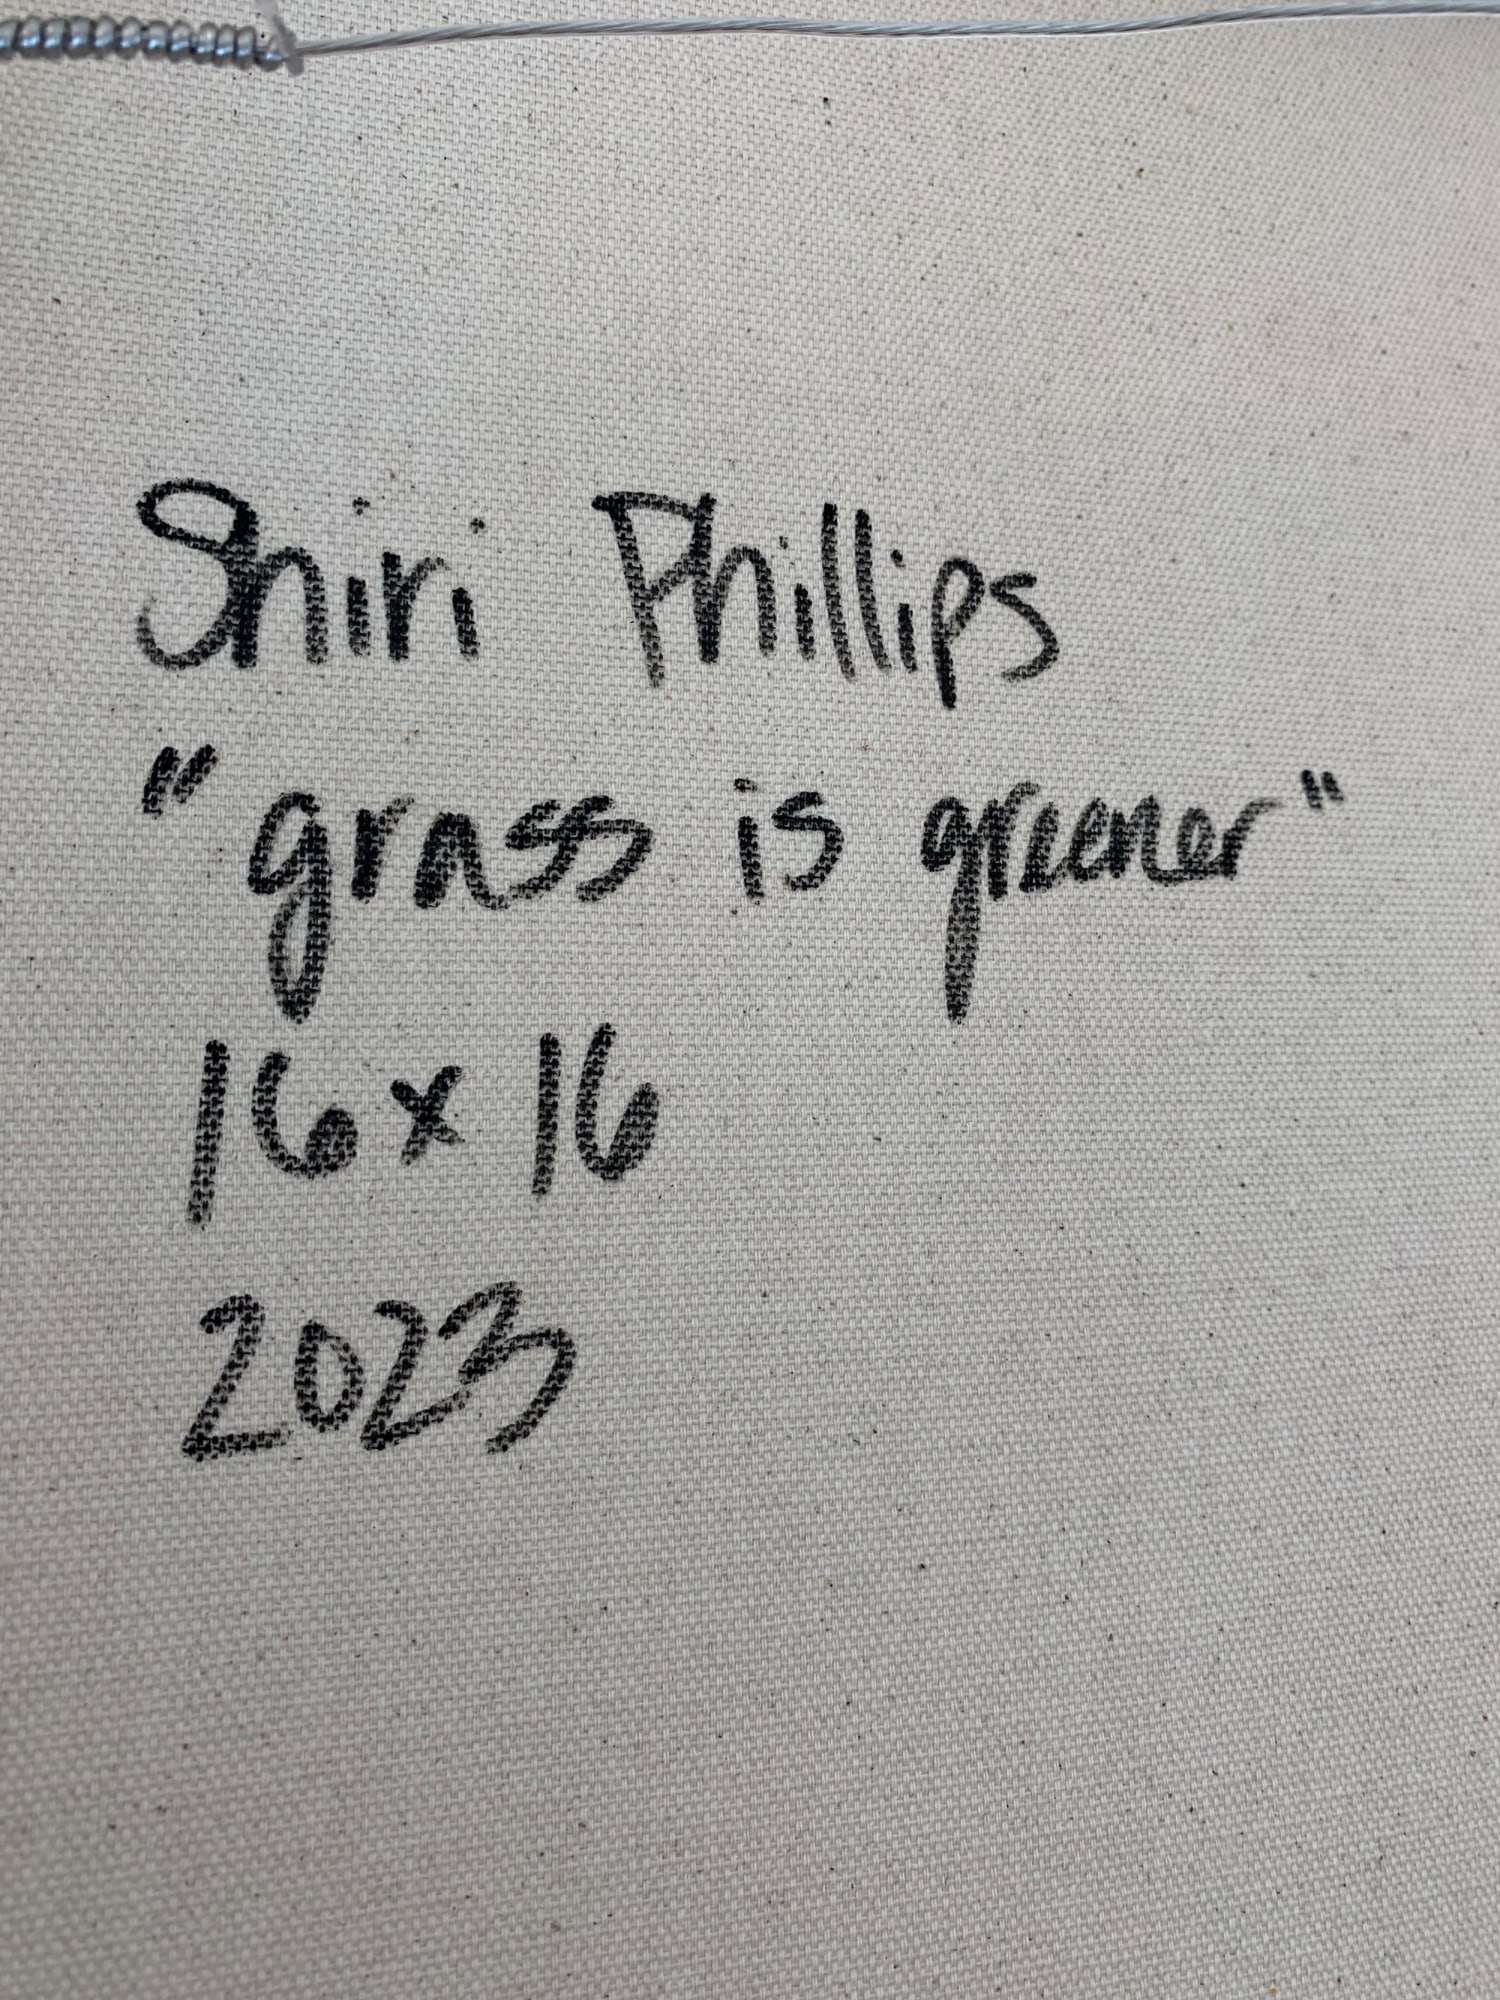 Shiri Phillips
"grass is greener"
16 x 16
2023